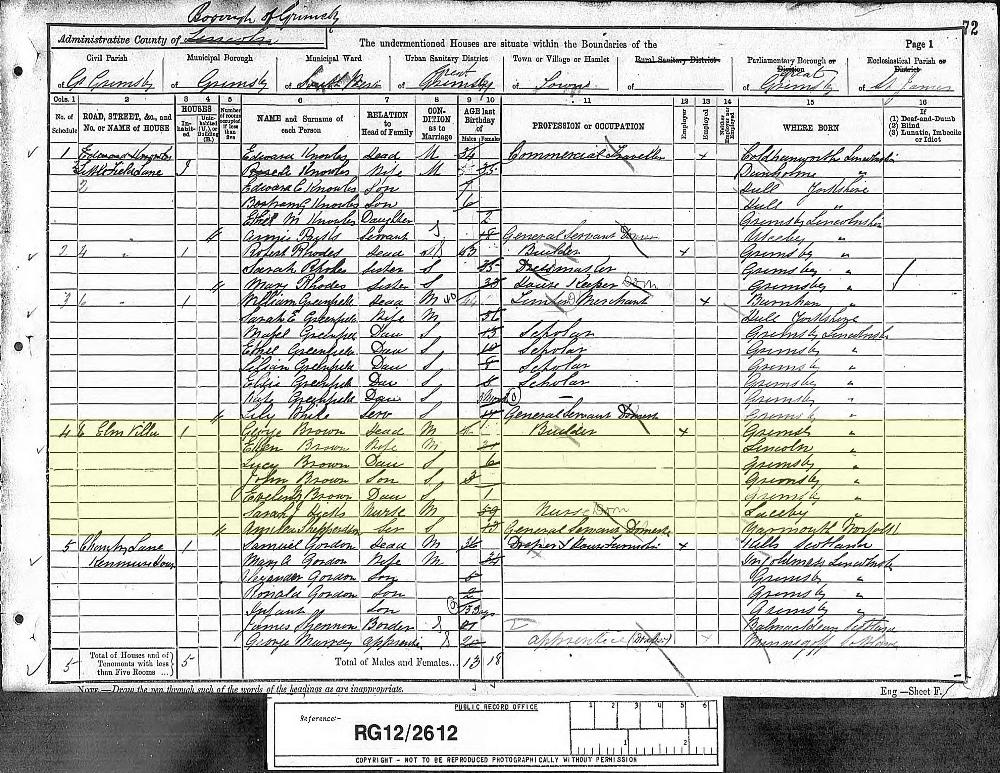 Borough of Grimsby
72
Administrative County of Lincoln
The undermentioned Houses are situate within the Boundaries of the
Page 1
Civil Parish
Municipal Borough
Municipal Ward
Urban Sanitary District
Town or Village or Hamlet
Rural Sanitary District
Parliamentary Borough or Division
Ecclesiastical Parish or District
of Gt Grimsby
of Grimsby
of South West
of Great Grimsby
of Town
of
of Great Grimsby
of St James
Cols. 1 2 3 4 5 6 7 8 9 10 11 12 13 14 15 16
No. of Schedule
ROAD, STREET, &c., and No. or NAME of HOUSE
HOUSES
Inhabited
Uninhabited (U.) or Building (B.)
Number of rooms occupied if less than five
NAME and Surname of each Person
RELATION to Head of Family
CONDITION as to Marriage
AGE last Birthday of
Males Females
PROFESSION or OCCUPATION
Employer
Employed
Neither Employer nor Employed
WHERE BORN
(1) Deaf-and-Dumb
(2) Blind
(3) Lunatic, Imbecile or Idiot
1 Edward Knowles Head M 34 Commercial Traveller Lincolnshire
Littlefield Lane Knowles Wife M 35 Dunholme "
2 Edward C Knowles Son Hull Yorkshire
Knowles Son 6 Hull "
Ethel M Knowles Daughter 2 Grimsby Lincolnshire
Annie Servant S 18 General Servant Domes "
2 4 " 1 Rhodes Head 43 Builder + Grimsby "
Sarah Rhodes Sister S 35 Dressmaker Grimsby "
Mary Rhodes Sister S House Keeper Dom Grimsby "
3 6 " 1 William Greenfield Head M 40 Merchant + Burnham "
Sarah E Greenfield Wife M Hull Yorkshire
Mabel Greenfield Dau S 13 Scholar Grimsby Lincolnshire
Ethel Greenfield Dau S 10 Scholar Grimsby "
Lilian Greenfield Dau S 8 Scholar Grimsby "
Elsie Greenfield Dau S Scholar Grimsby "
Greenfield Dau S Grimsby "
Lily White Serv S General Servant Domest Grimsby "
4 Elm Villa 1 George Brown Head M Builder + Grimsby "
Ellen Brown Wife M Lincoln "
Lucy Brown Dau S 6 Grimsby "
John Brown Son S 3 Grimsby "
Eveling Brown Dau S 1 Grimsby "
Sarah J Nurse M 59 Nurse Dom Laceby "
Shepperdson Ser S General Servant Domest Yarmouth Norfolk
5 Lane 1 Samuel Gordon Head M 36 Draper & House Furnishin + Scotland
Mary A Gordon Wife M 34 Ingoldmells Lincolnshire
Alexander Gordon Son Grimsby "
Ronald Gordon Son 2 Grimsby "
Infant Son Grimsby "
James Border S Scotland
George Murray Apprentice S 20 Apprentice (Draper) Minnegoff Scotland
5
Total of Houses and of Tenements with less than Five Rooms ...
5
Total of Males and Females... 13 18
NOTE.—Draw the pen through such of the words of the headings as are inappropriate.
Eng—Sheet F.
PUBLIC RECORD OFFICE
Reference:-
RG12/2612
1 2 3 4 5 6
1 2
COPYRIGHT - NOT TO BE REPRODUCED PHOTOGRAPHICALLY WITHOUT PERMISSION